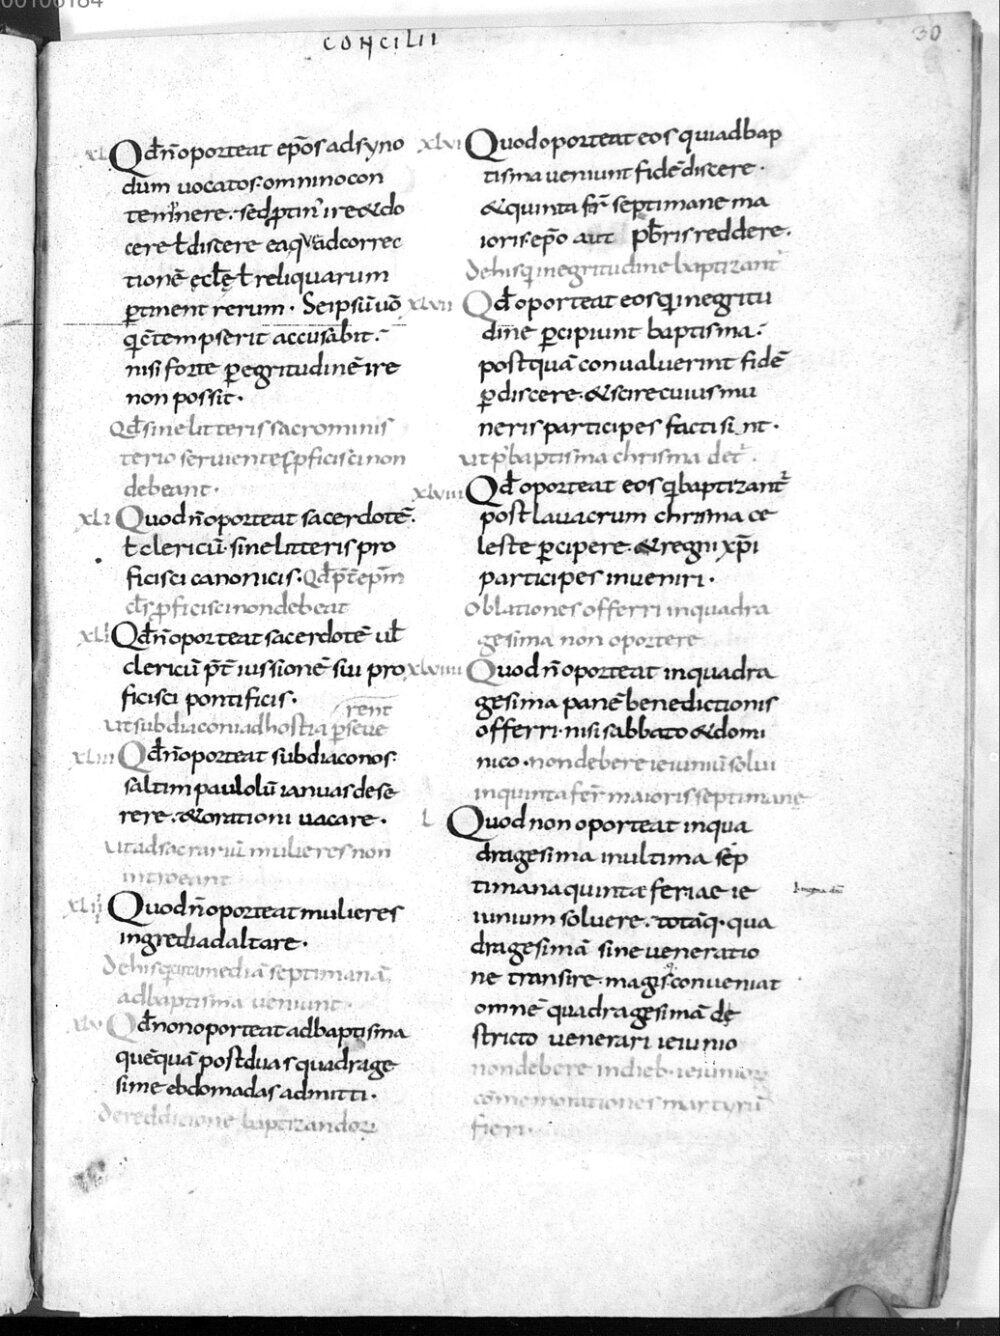 00106184
CONCILII
30
xl Qđn̄oporteat ep̄os adsyno
dum uocatos omnino con
temnere. sed ptin' ire & do
cere ł discere eaquę adcorrec
tionē ęclę ł reliquarum
ꝑtinent rerum. Seipsū uō
qic̄tempserit accusabit.
nisi forte ꝑ egritudinē ire
non possit.
Qđ sine litteris sacro minis
terio seruientes ꝓficisci non
debeant.
xli Quod n̄ oporteat sacerdotē.
ł clericū. sine litteris pro
ficisci canonicis. Qđ p̄t ep̄m
cłs ꝓficisci non debeat
xlii Qđ n̄ oporteat sacerdotē uł
clericū p̄t iussionē sui pro
ficisci pontificis.
rent
Ut subdiaconi ad hostia ꝑseue
xliii Qđ n̄ oporteat subdiaconos
saltim paulolū ianuas dese
rere. & orationi uacare.
Ut ad sacrariū mulieres non
introeant
xliiii Quod n̄ oporteat mulieres
ingredi ad altare.
De his qui post mediā septimanā
ad baptisma ueniunt.
xlv Qđ non oporteat ad baptisma
quēquā post duas quadrage
sime ebdomadas admitti.
De reddicione baptizandoꝝ
xlvi Quod oporteat eos qui ad bap
tisma ueniunt fidē discere.
& quinta fer̄ septimane ma
ioris. ep̄o aut pb̄ris reddere.
De his qi in egritudine baptizant'
xlvii Qđ oporteat eos qi in egritu
dine ꝑcipiunt baptisma.
postquā conualuerint fidē
ꝑdiscere. & scire cuius mu
neris participes facti sint.
Ut p' baptisma chrisma det'.
xlviii Qđ oporteat eos qi baptizant'
post lauacrum chrisma ce
leste ꝑcipere. & regni xp̄i
participes inueniri.
Oblationes offerri in quadra
gesima non oportere
xlviiii Quod n̄ oporteat in quadra
gesima panē benedictionis
offerri. nisi sabbato & domi
nico. non debere ieiuniū solui
in quinta fer̄ maioris septimanę
L Quod non oporteat in qua
dragesima in ultima sep
timana quintæ feriae ie
iunium soluere. totāq. qua
dragesimā sine ueneratio
ne transire. magis conueniat
omnē quadragesimā de
stricto uenerari ieiunio
non debere in dieb. ieiunioꝝ
cōmemorationes martyrū
fieri